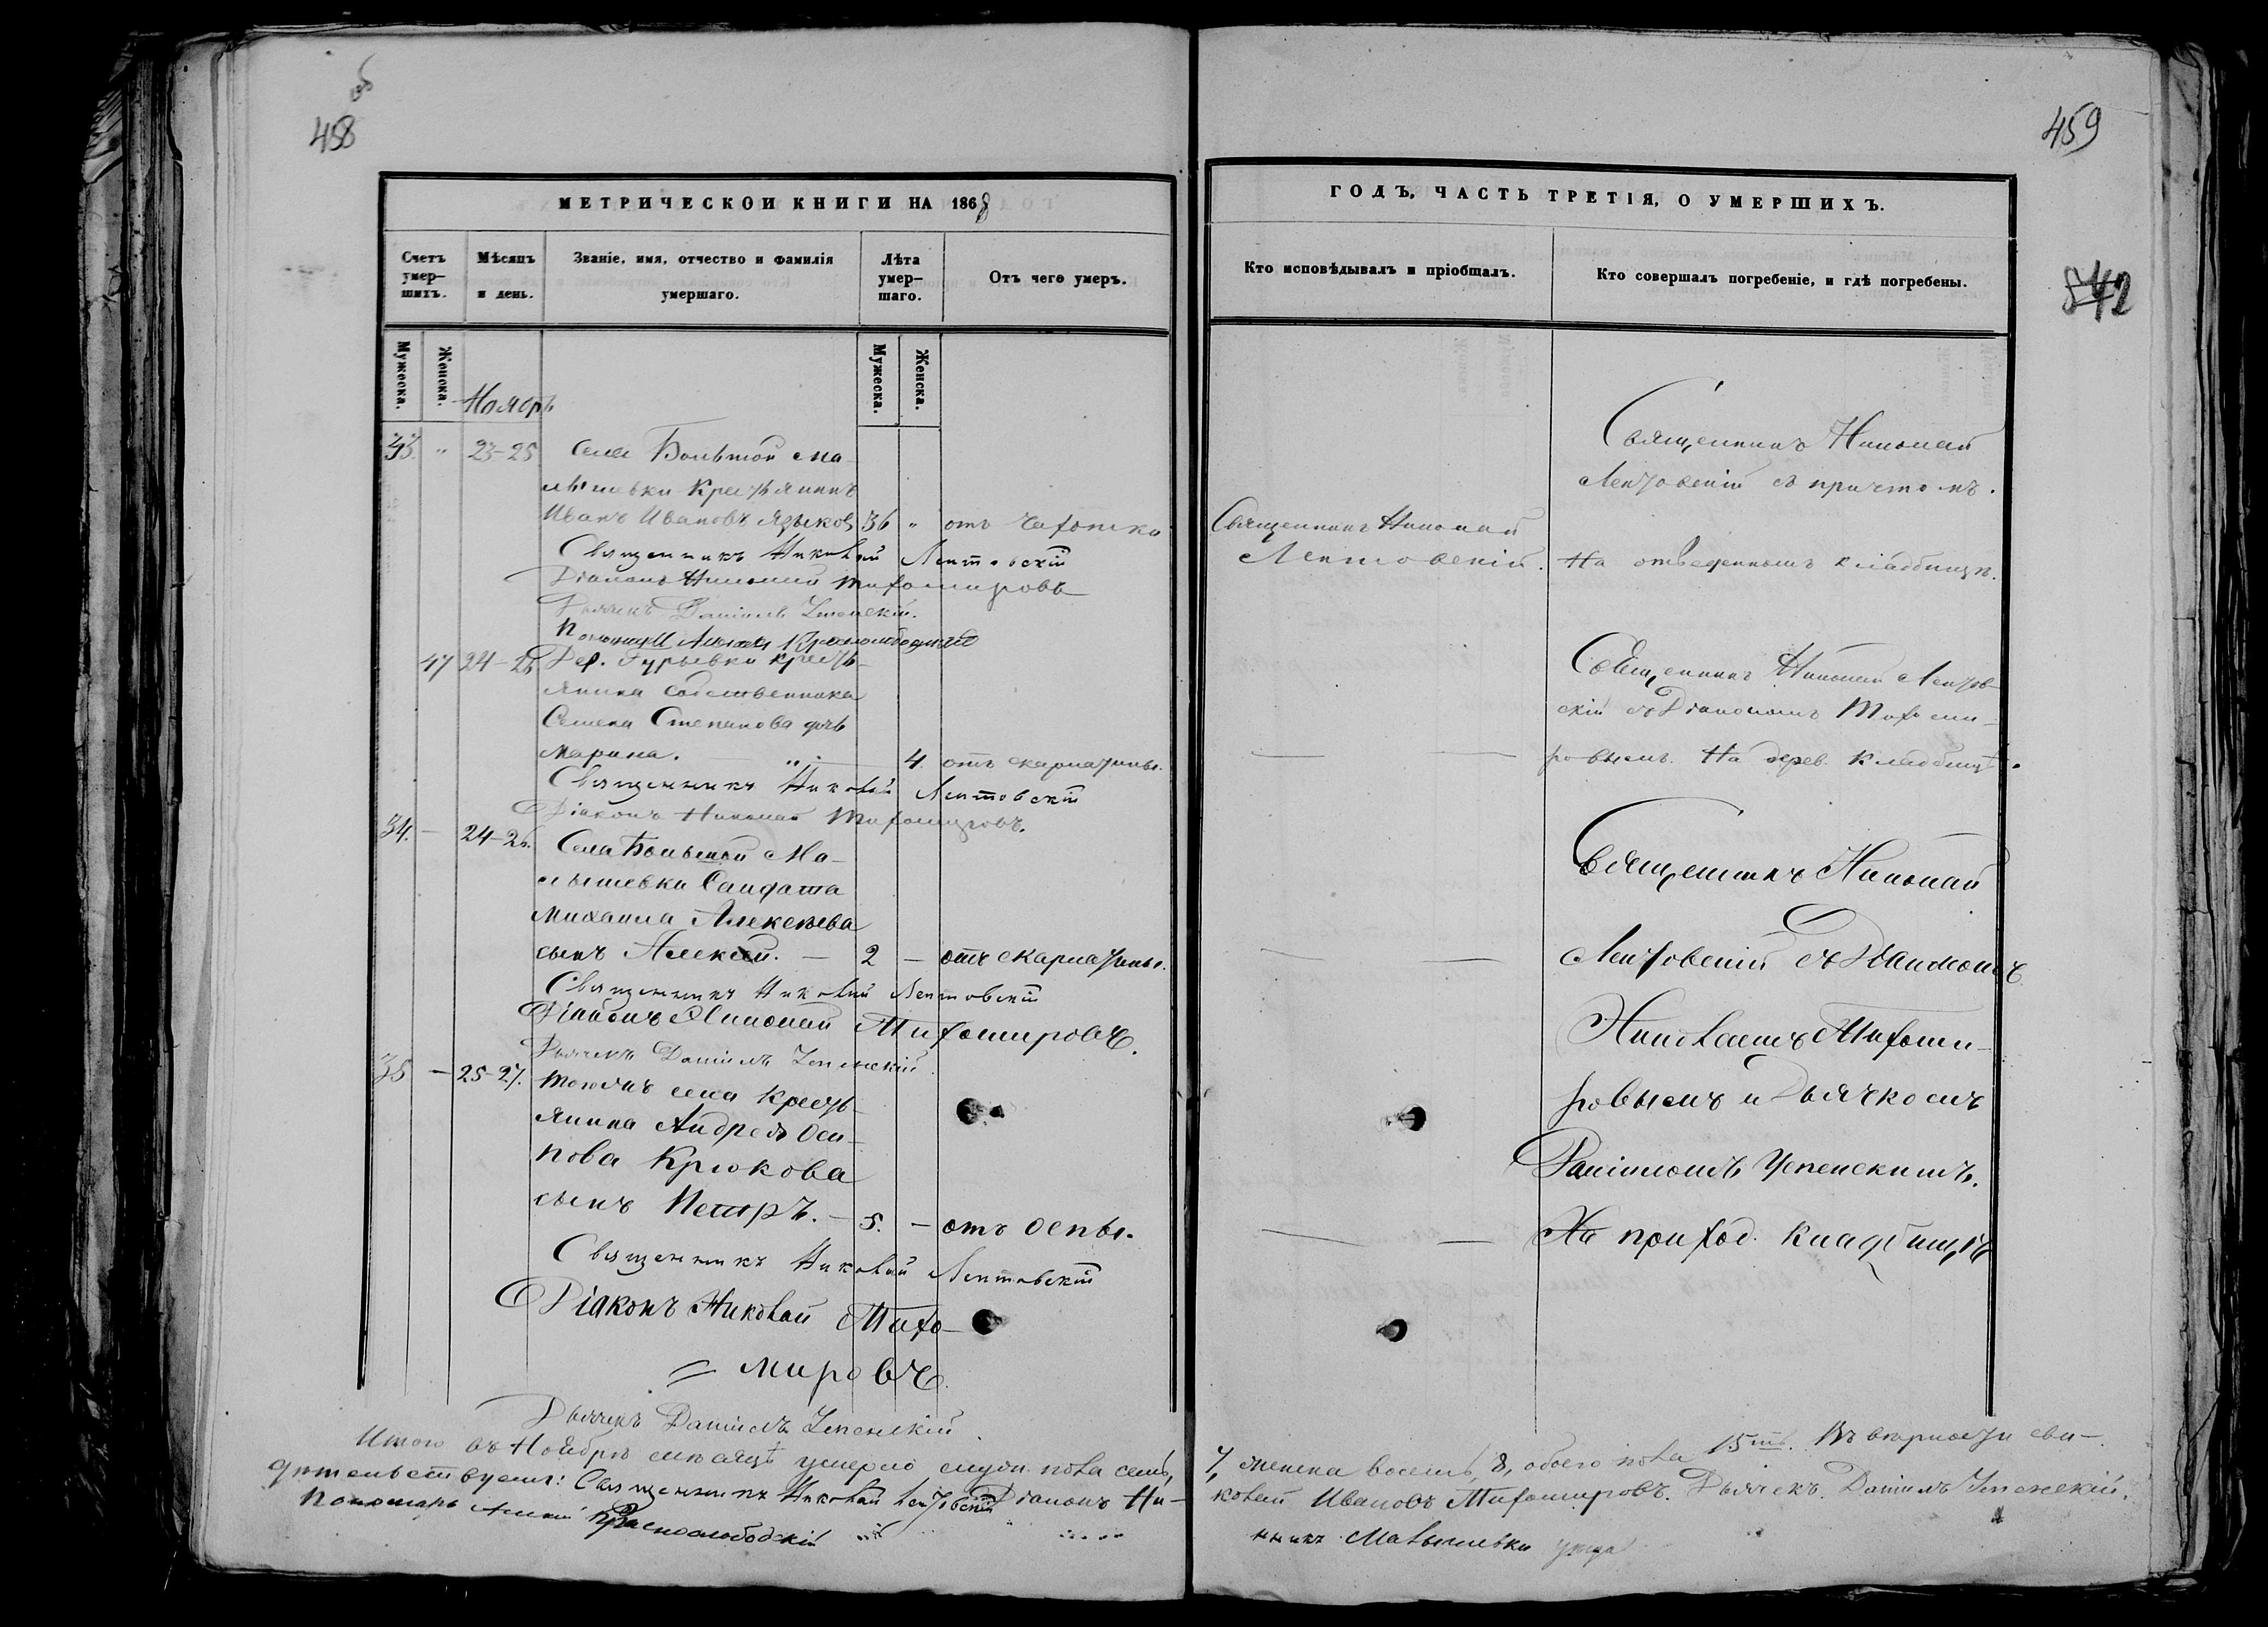 об
458
МЕТРИЧЕСКОИ КНИГИ НА 1868
Счетъ умер-шихъ.
Мѣсяцъ и день.
Званіе, имя, отчество и фамилія умершаго.
Лѣта умер-шаго.
Отъ чего умеръ.
Мужеска.
Женска.
Мужеска.
Женска.
Ноябрь
33. " 23-25 Села Большой Ма-
лышевки Крестьянинъ
Иванъ Ивановъ Языковъ 36 " отъ чахотки
Священникъ Николай Лентовскій
Діаконъ Николай Тихомировъ
Дьячекъ Даніилъ Успенскій.
Пономарь Алексій Краснослободскій
47 24-26 Дер. Гурьевки крестъ-
янина Собственника
Семена Степанова дочь
Марина. " 4 отъ скарлатины.
Священникъ Николай Лентовскій
Діаконъ Николай Тихомировъ.
34. — 24-26. Села Большой Ма-
лышевки Солдата
Михаила Алексѣева
сынъ Алексѣй. — 2 — отъ скарлатины.
Священникъ Николай Лентовскій
Діаконъ Николай Тихомировъ.
Дьячекъ Даніилъ Успенскій.
35 — 25-27. Тогожъ села Кресть-
янина Андрея Оси-
пова Крюкова
сынъ Петръ. — 5. — отъ оспы.
Священникъ Николай Лентовскій
Діаконъ Николай Тихо-
= мировъ
Дьячекъ Даніилъ Успенскій.
Итого въ Ноябрѣ мѣсяцѣ умерло мужи. пола семь,
дѣтельствуемъ: Священникъ Николай Лентовскій Діаконъ Ни-
Пономарь Алексій Краснослободскій
459
542
ГОДЪ, ЧАСТЬ ТРЕТІЯ, О УМЕРШИХЪ.
Кто исповѣдывалъ и пріобщалъ.
Кто совершалъ погребеніе, и гдѣ погребены.
Священникъ Николай
Лентовскій съ причтомъ.
Священникъ Николай
Лентовскій. На отведенномъ кладбищѣ.
Священникъ Николай Лентов-
скій съ Діакономъ Тихоми-
— — ровымъ. На дерев. Кладбищѣ.
Священникъ Николай
— — Лентовскій съ Діакономъ
Николаемъ Тихоми-
ровымъ и Дьячкомъ
Даніиломъ Успенскимъ.
— — На приход. кладбищѣ
7, женска восемь, 8, обоего пола 15ть. Въ вѣрности сви-
колай Ивановъ Тихомировъ. Дьячекъ Даніилъ Успенскій.
Малышевки